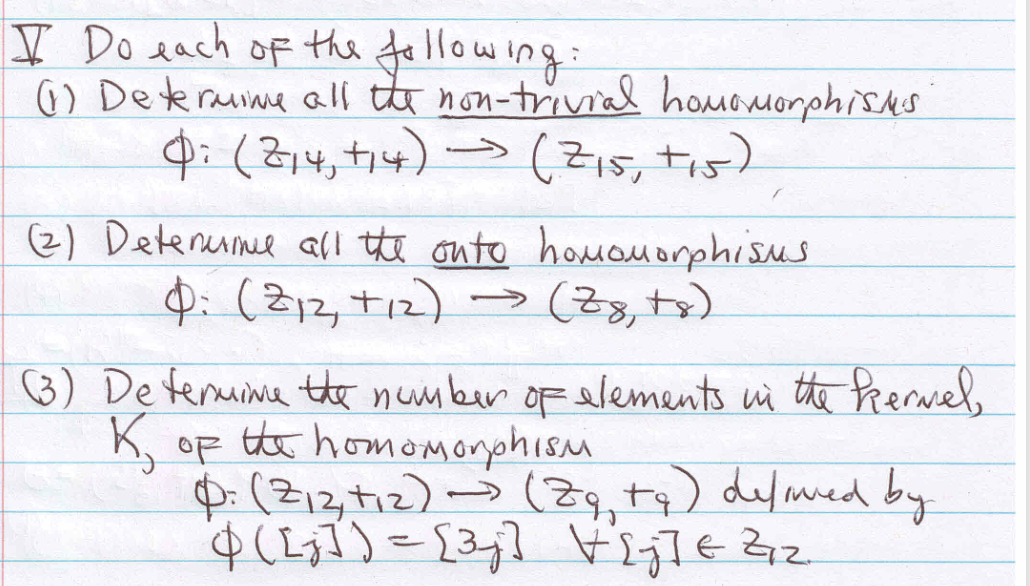 V Do each of the following:
(1) Determine all the non-trivial homomorphisms
ϕ: (Z₁₄, +₁₄) → (Z₁₅, +₁₅)
(2) Determine all the onto homomorphisms
ϕ: (Z₁₂, +₁₂) → (Z₈, +₈)
(3) Determine the number of elements in the kernel,
K, of the homomorphism
ϕ: (Z₁₂, +₁₂) → (Z₉, +₉) defined by
ϕ([j]) = [3j] ∀ [j] ∈ Z₁₂